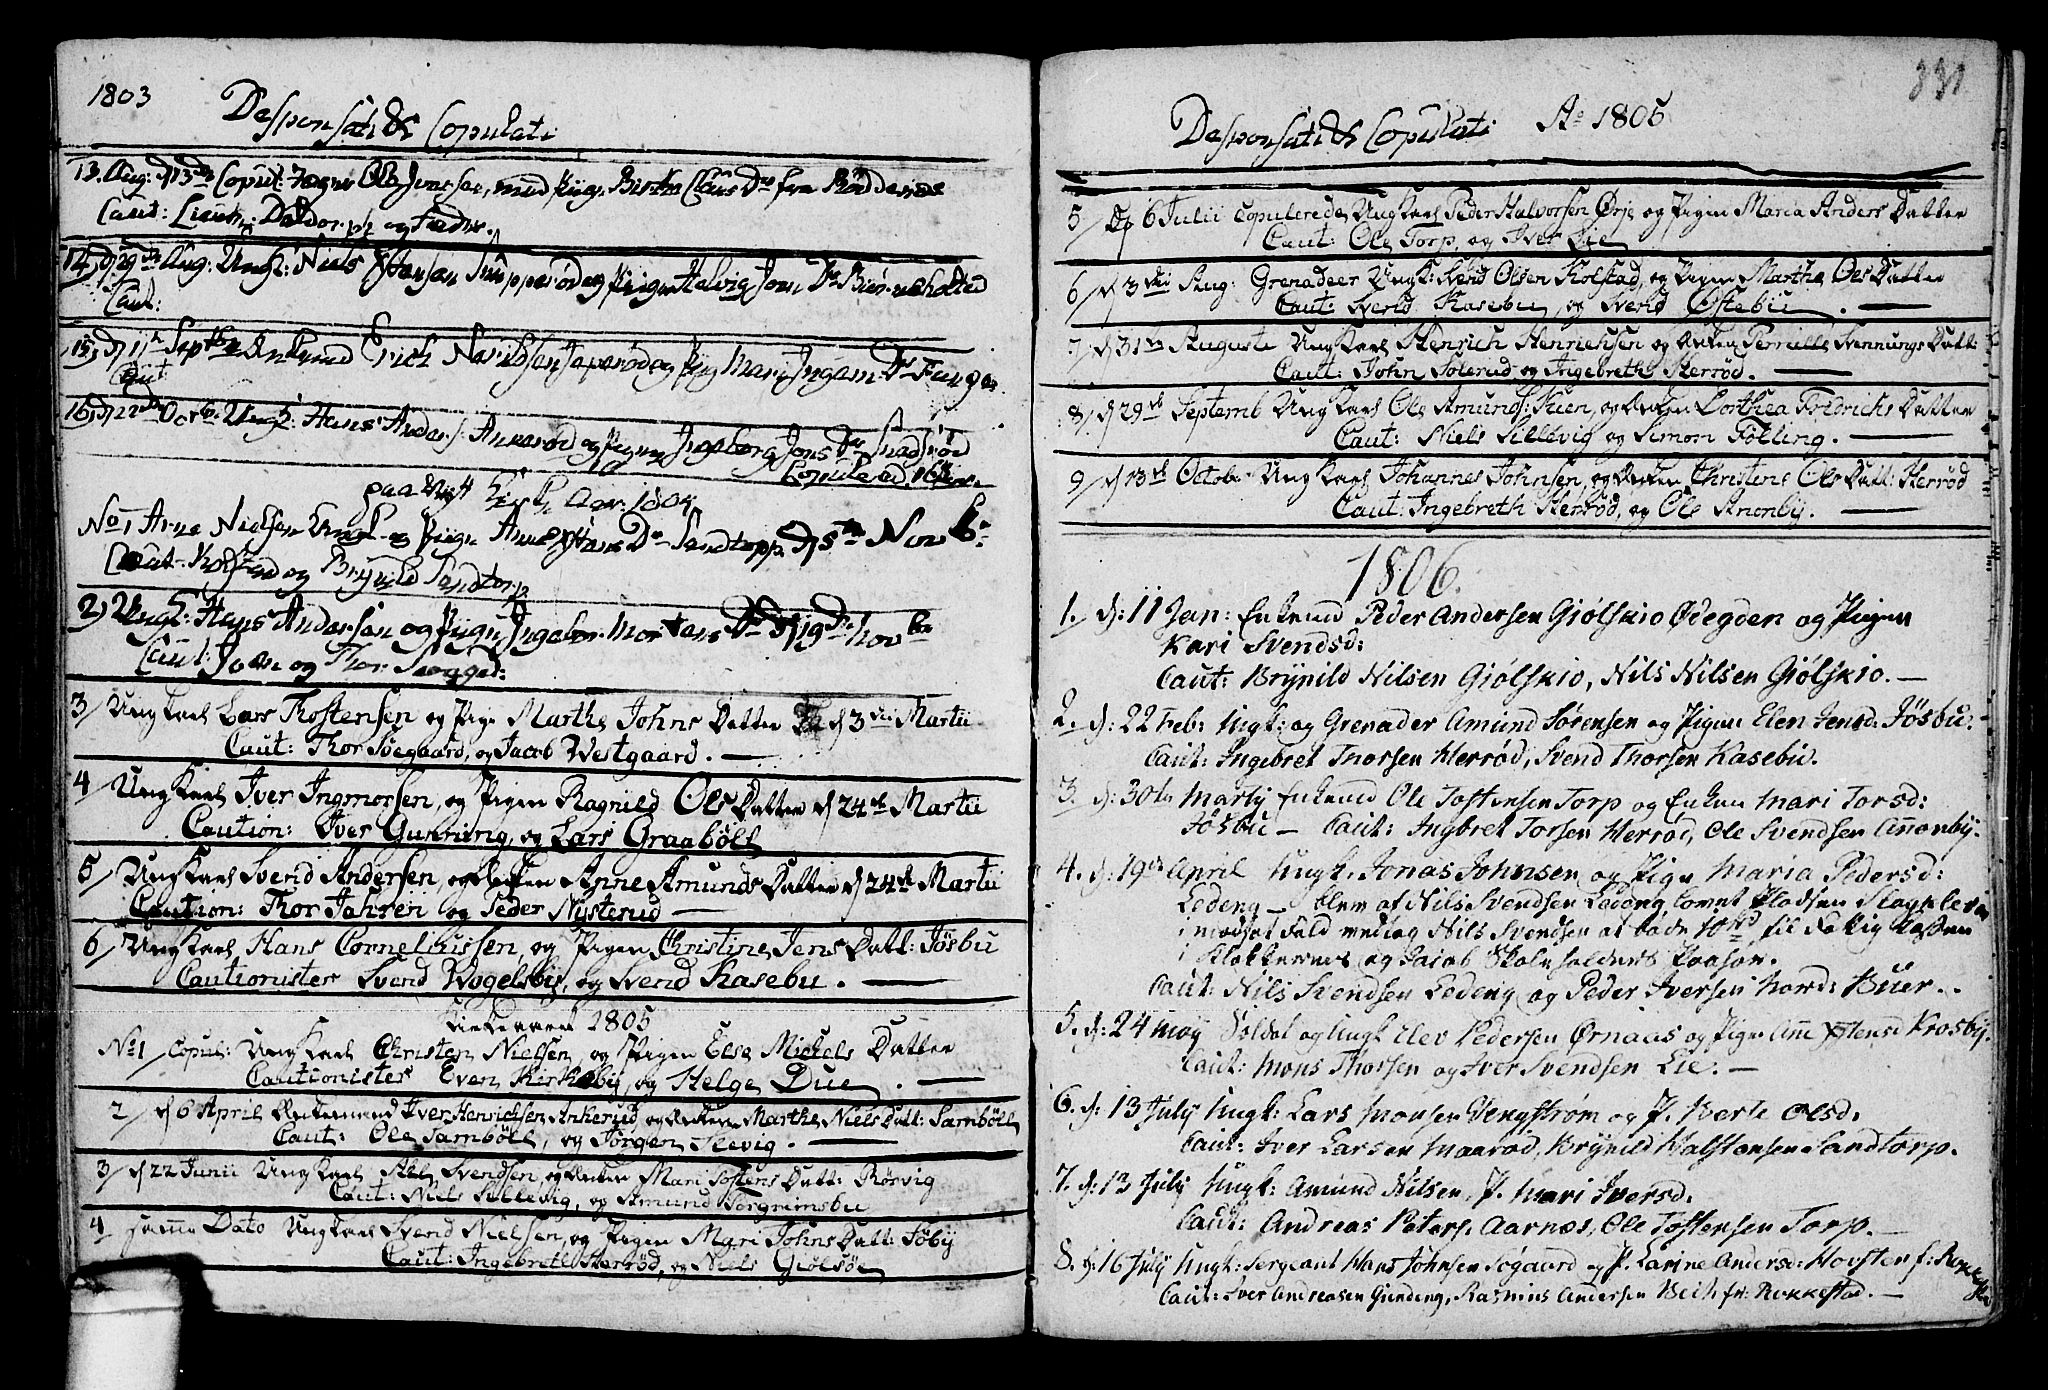 1803
Desponsati & Copulati
13. Aug: d 13de Copul: Jæger Ole Jensen, med Piig. Birthe Clausdr fra Rødenæs
Caut: Lieutn: Daldorph og
14, d 29de Aug: Ungk: Niels og Piigen Helvig Jons Dr
Caut:
15, d 11te Septbr Enkemand Erich og Pig Mari Ingem Dr
Caut
16, d 22de Octb. Ungk: Hans Anders: og Pigen Ingeborg Jons Dr
Copulered
paa Nyt Kirke Aar 1804
No 1 Arne Nielsen og Piigen Anne Hans Dr Sandtorp d 5te Novb:
Caut: og Brynild Sandtorp
2, Ungk: Hans Andersen og Piigen Ingebor Mortens Dr d 19de Novbr
Caut: Joen og Thor
3/ Ungkarl Lars Thostensen og Pige Marthe Johns Datter d 3die Martii
Caut: Thor Soegaard, og Jacob Westgaard. —
4/ Ungkarl Iver Ingmorsen, og Pigen Ragnild Ols Datter d 24de Martii
Caution: Iver Gunning, og Lars Graabøll
5/ Ungkarl Svend Andersen, og Anne Amunds Datter d 24de Martii
Caution: Thor Jahren og Peder Nysterud —
6/ Ungkarl Hans Corneliussen, og Pigen Christine Jens Datt: Jøsbu
Cautionister Svend Wogelsby, og Svend Kasebu. —
Kirkeaaret 1805
No 1 Copul: Ungkarl Christen Nielsen, og Pigen Else Michels Datter
Cautionister Even Kirkeby, og Helge Due. —
2/ d 6 April Enkemand Iver Henrichsen Ankerud, og Enken Marthe Niels Datt: Sambøll
Caut: Ole Sambøll, og Jørgen Slevig. —
3/ d 22 Junii Ungkarl Svendsen, og Enken Mari Tostens Datt: Rørvig
Caut: Niels Sillevig, og Amund Torgrimsbu
4 samme Dato Ungkarl Svend Nielsen, og Pigen Mari Johns Datt: Jøby
Caut: Ingebreth Herrød, og Niels Giølsøe
331
Desponsati & Copulati Ao 1805
5/ D. 6 Julii copulerede Ungkarl Peder Halvorsen Ørje og Pigen Maria Anders Datter
Caut: Ole Torp, og Iver Lie
6/ d 3die Aug: Grenadeer Ungk: Svend Olsen Kolstad, og Pigen Marthe Ols Datter
Caut: Svend Kasebu, og Svend Østebu. —
7/ d 31te Augusti Ungkarl Henrich Henrichsen og Enken Pernille Svennungs Datt:
Caut: John Solerud og Ingebreth Herrød. —
8/ d 29de Septemb Ungkarl Ole Amunds: Kuen, og Enken Dorthea Fredrichs Datter
Caut: Niels Sillevig og Simon Fölling. —
9/ d 13de Octobr Ungkarl Johannes Johnsen, og Enken Christens Ols Datt: Herrød
Caut: Ingebreth Herrød, og Ole Anonby. —
1806.
1. d: 11 Jan: Enkemd Peder Andersen Giølskio Ødegden og Pigen
Kari Svendsd:
Caut: Brynild Nilsen Giølskio, Nils Nilsen Giølskio. —
2. d: 22 Feb: Ungk: og Grenader Amund Sørensen og Pigen Elen Jensd: Jösbu.
Caut: Ingebret Thorsen Herrød, Svend Thorsen Kasebu.
3. d: 30te Marty Enkemd Ole Tostensen Torp og Enken Mari Torsd:
Jösbu — Caut: Ingbret Torsen Herrød, Ole Svendsen Annonby.
4. d: 19de April Ungk. Jonas Johnsen og Pigen Maria Pedersd:
Ledeng — blev af Nils Svendsen Ledeng lovet Pladsen
i modsat Fald vedtog Nils Svendsen at bøde 10 rd, til Fattig Kassen
i Klokkerens og Jacob Skoleholders Paahør.
Caut: Nils Svendsen Ledeng og Peder Iversen Nord: Buer. .
5. d: 24 May Soldat og Ungk Elev Pedersen Ørnaas og Pigen Anne Stensd Krosby.
Caut: Mons Thorsen og Iver Svendsen Lie. —
6. d: 13 July Ungk: Lars Monsen Vengstrøm og P. Berte Olsd.
Caut: Iver Larsen Maarød, Brynild Halstensen Sandtorp.
7. d: 13 July Ungk: Amund Nilsen, P. Mari Iversd.
Caut: Andreas Peters: Aarnes, Ole Tostensen Torp. —
8. d: 16 July Ungk: Sergeant Hans Johnsen Sogaard og P. Karine Andersd:
Caut: Iver Andreasen Gundeng, Rasmus Andersen Veit fr: Rokkestad. —